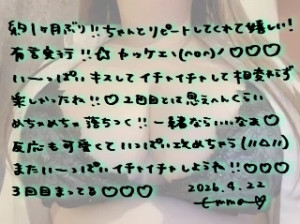 約1ヶ月ぶり!!ちゃんとリピートしてくれて嬉しい!
有言実行!!☆ ヤッケェい(non)ノ♡♡♡
い〜っぱいキスしてイチャイチャして相変わらず
楽しかったね!!♡ 2回目とは思えへんくらい
めちゃめちゃ落ちつく!!一緒ならいいなぁ♡
反応も可愛くていっぱい攻めちゃう(\\△\\)
またい〜っぱいイチャイチャしようね!!♡♡♡
3回目まってる♡♡♡ 2026.4.22
Emma♡